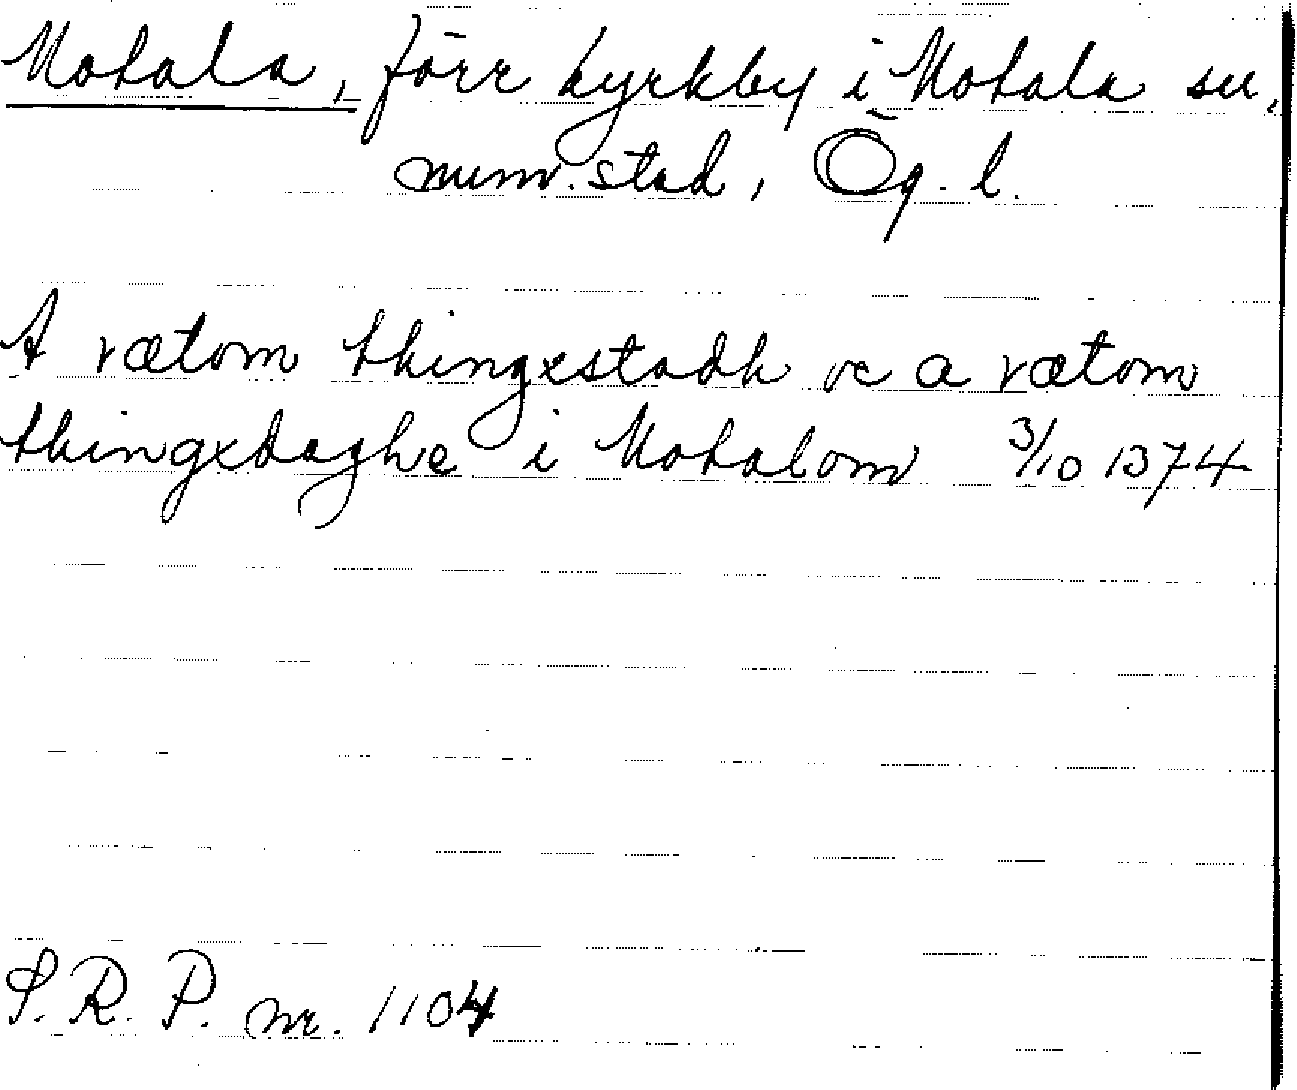 Motala, förr kyrkby i Motala sn,
numv. stad, Ög. l.
A rætom thingxstadh oc a rætom
thingxdaghe i Motalom 3/10 1374
S.R.P. nr. 1104